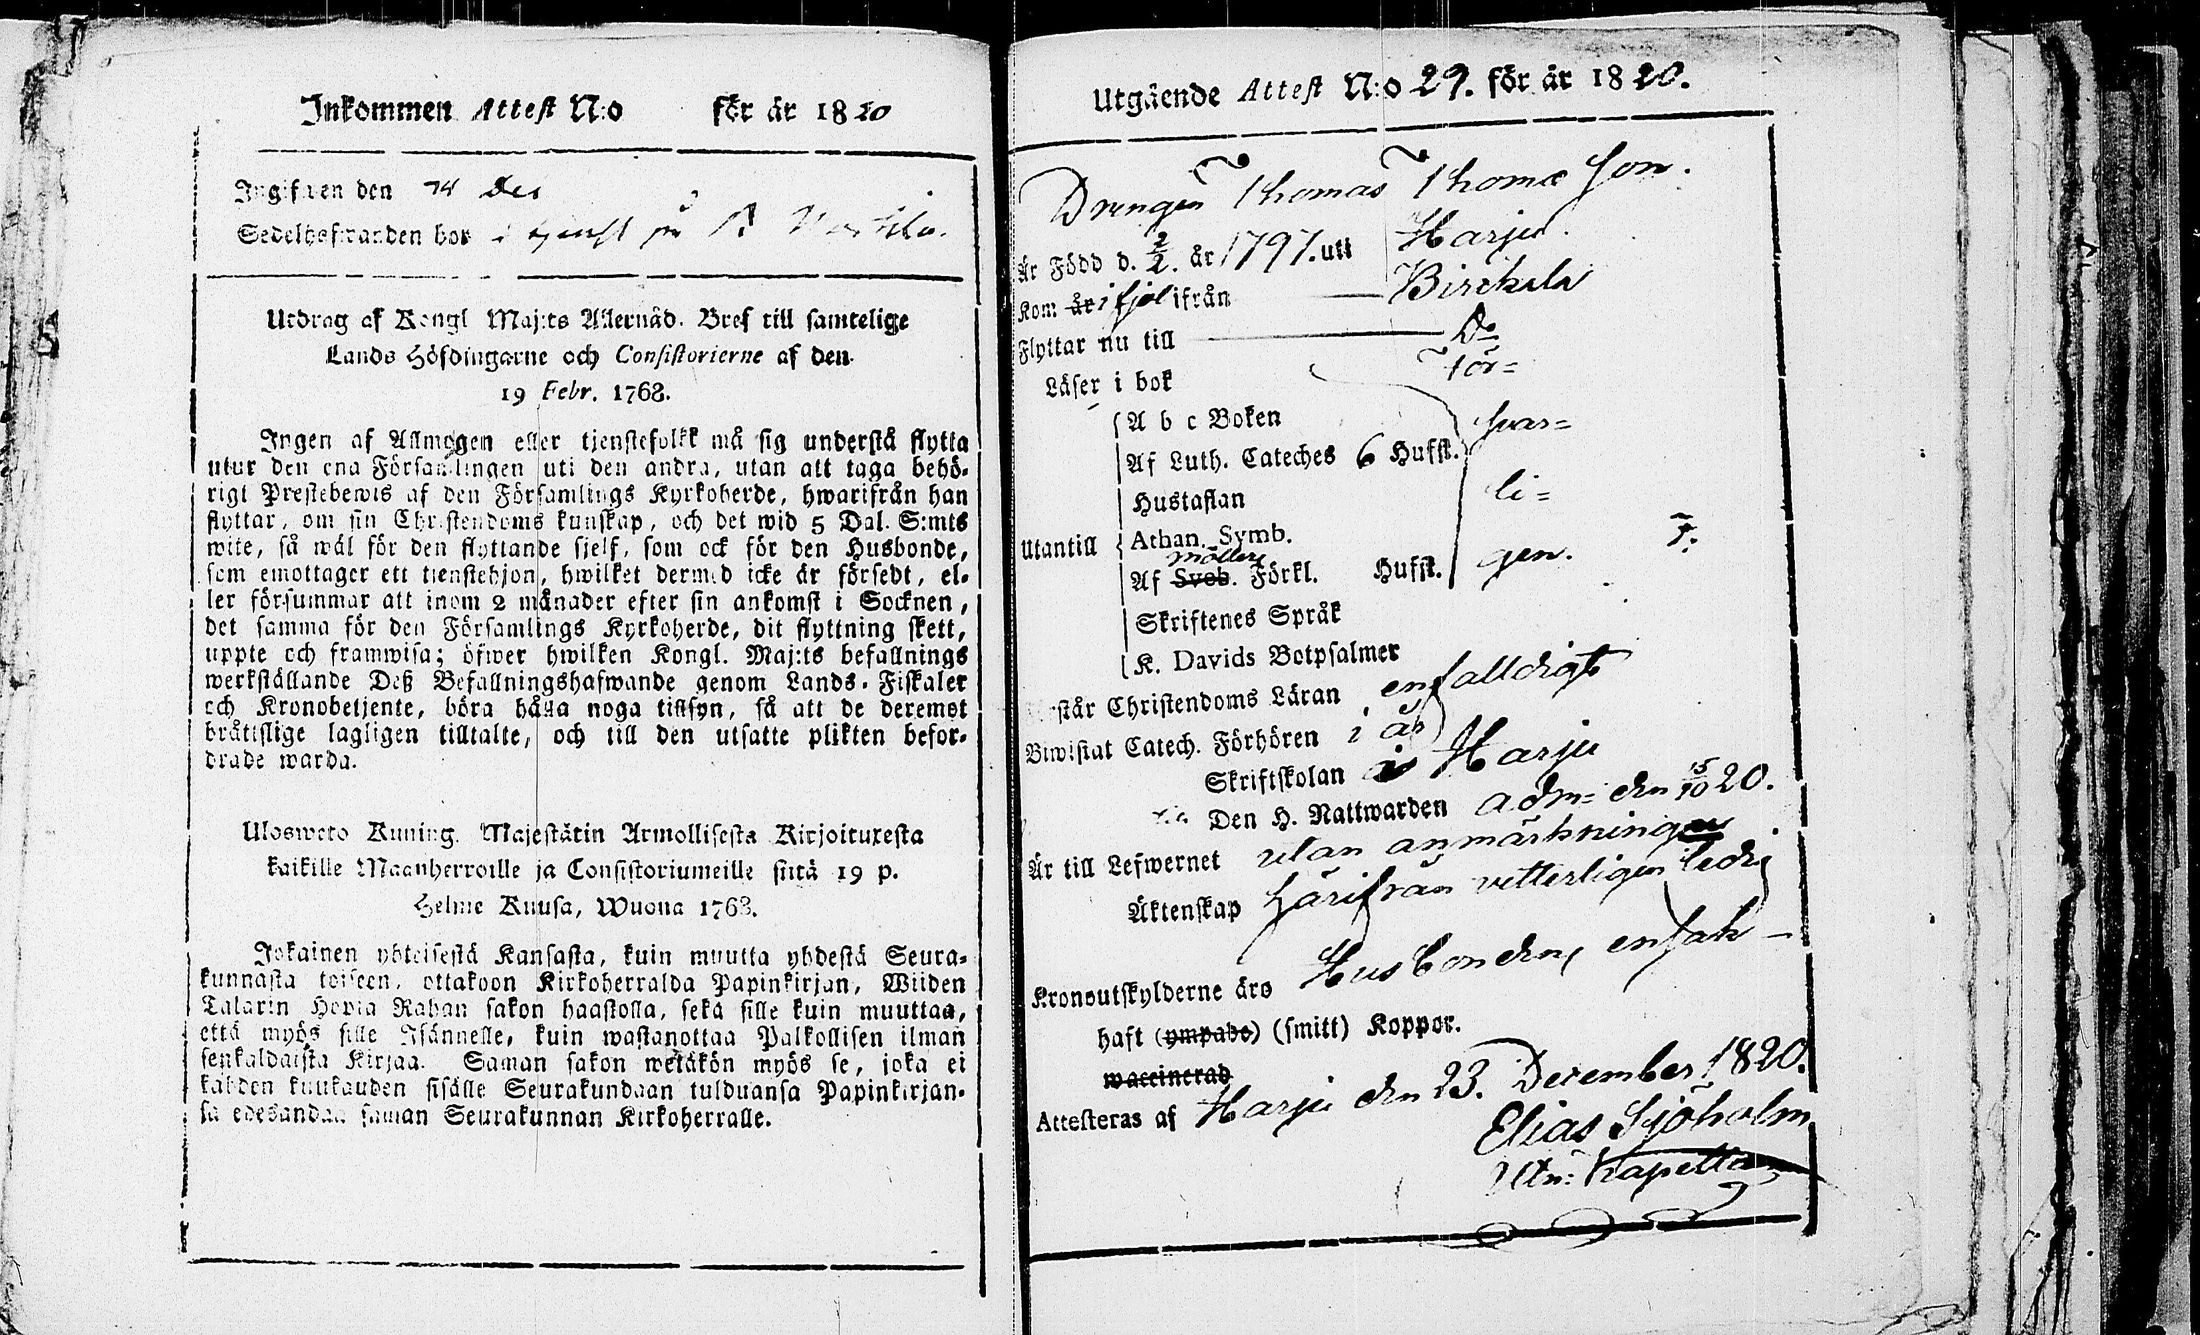 Inkommen Attest N:o för år 1820
Ingifwen den 24 Dec
Sedelhafwanden bor i tjenst på
Utdrag af Kongl Maj:ts Allernåd. Bref till samtelige
Lands Höfdingarne och Consistorierne af den
19 Febr. 1768.
Ingen af Allmogen eller tjenstefolkk må sig understå flytta
utur den ena Församlingen uti den andra, utan att taga behö-
rigt Prestebewis af den Församlings Kyrkoherde, hwarifrån han
flyttar, om sin Christendoms kunskap, och det wid 5 Dal. S:mts
wite, så wäl för den flyttande sjelf, som ock för den Husbonde,
som emottager ett tienstehjon, hwilket dermed icke är försedt, el-
ler försummar att inom 2 månader efter sin ankomst i Socknen,
det samma för den Församlings Kyrkoherde, dit flyttning skett,
uppte och framwisa; öfwer hwilken Kongl. Maj:ts befallnings
werkställande Deß Befallningshafwande genom Lands-Fiskaler
och Kronobetjente, böra hålla noga tillsyn, så att de deremot
bråtislige lagligen tilltalte, och till den utsatte plikten befor-
drade warda.
Ulosweto Kuning. Majestätin Armollisesta Kirjoituxesta
kaikille Maanherroille ja Consistoriumeille siitä 19 p.
Helme Kuusa, Wuona 1768.
Jokainen yhteisestä Kansasta, kuin muutta yhdestä Seura-
kunnasta toiseen, ottakoon Kirkoherralda Papinkirjan, Wiiden
Talarin Hopia Rahan sakon haastolla, sekä sille kuin muuttaa,
että myös sille Isännelle, kuin wastanottaa Palkollisen ilman
senkaldaista Kirjaa. Saman sakon wetäkön myös se, joka ei
kahden kuukauden sisälle Seurakundaan tulduansa Papinkirjan-
sa edesandaa saman Seurakunnan Kirkoherralle.
Utgående Attest N:o 29. för år 1820.
Drengen Thomas Thomæ Son.
Är Född d. 2/2. år 1797. uti Harju.
Kom år i fjol ifrån Birckala
Flyttar nu till Do
Läser i bok För=
A b c Boken svar=
Af Luth. Cateches 6 Hufst.
Hustaflan li=
Utantill Athan. Symb.
Möllers
Af Sveb. Förkl. Hufst. gen. F.
Skriftenes Språk
K. Davids Botpsalmer
Förstår Christendoms Läran enfalldigt
Biwistat Catech. Förhören i år
Skriftskolan i Harju
Den H. Nattwarden adm= den 15/10 20.
Är till Lefwernet utan anmärkningen
Äktenskap härifrån vetterligen ledig
Kronoutskylderne äro Husbondens ensak
haft (ympade) (smitt) Koppor.
waccinerad
Attesteras af Harju den 23. December 1820.
Elias Sjöholm
Kapellan